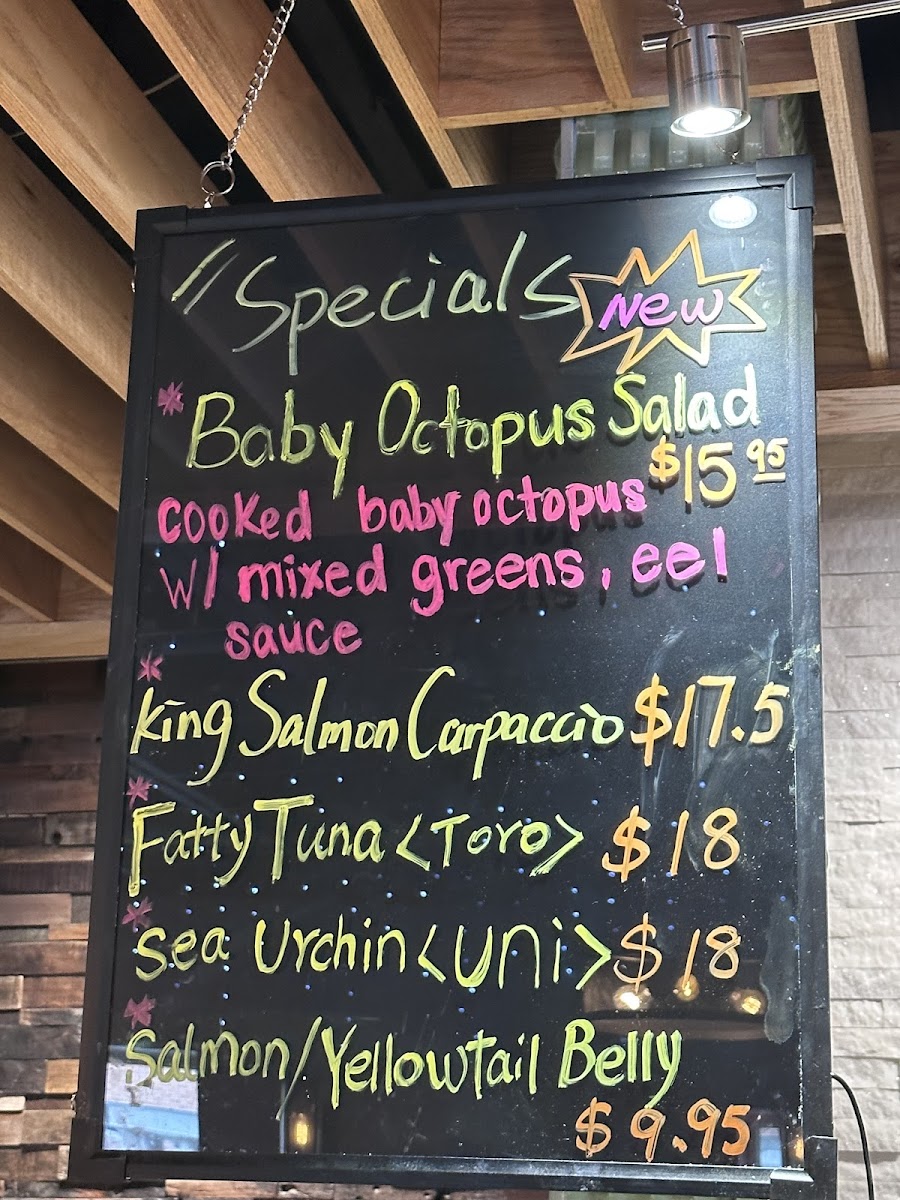 "Specials
New
* Baby Octopus Salad
$15 95
cooked baby octopus
w/ mixed greens, eel
sauce
* King Salmon Carpaccio $17.5
* Fatty Tuna <Toro> $18
* Sea Urchin <Uni> $18
* Salmon/Yellowtail Belly
$9.95